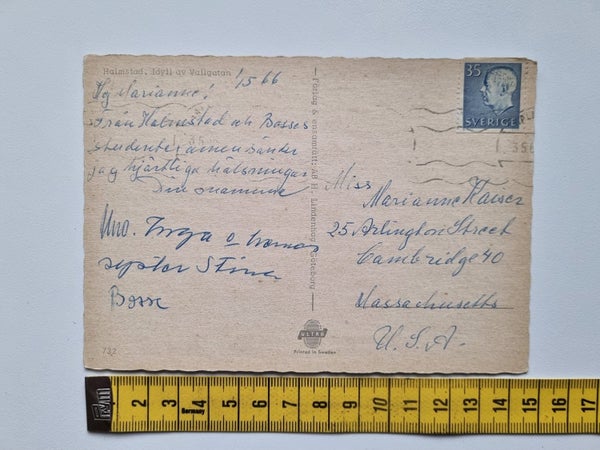 Halmstad. Idyll av Vallgatan
1/5 66
Hej Marianne!
Från Halmstad och Bosses
studentexamen sänder
jag hjärtliga hälsningar
Din
Inga o
Stina
Bosse
732
Förlag & ensamrätt: AB H. Lindenhag, Göteborg
ULTRA
Printed in Sweden
35
SVERIGE
Miss
Marianne Kaiser
25 Arlington Street
Cambridge 40
Massachusetts
U.S.A.
1 2 3 4 5 6 7 8 9 10 11 12 13 14 15 16 17
Germany